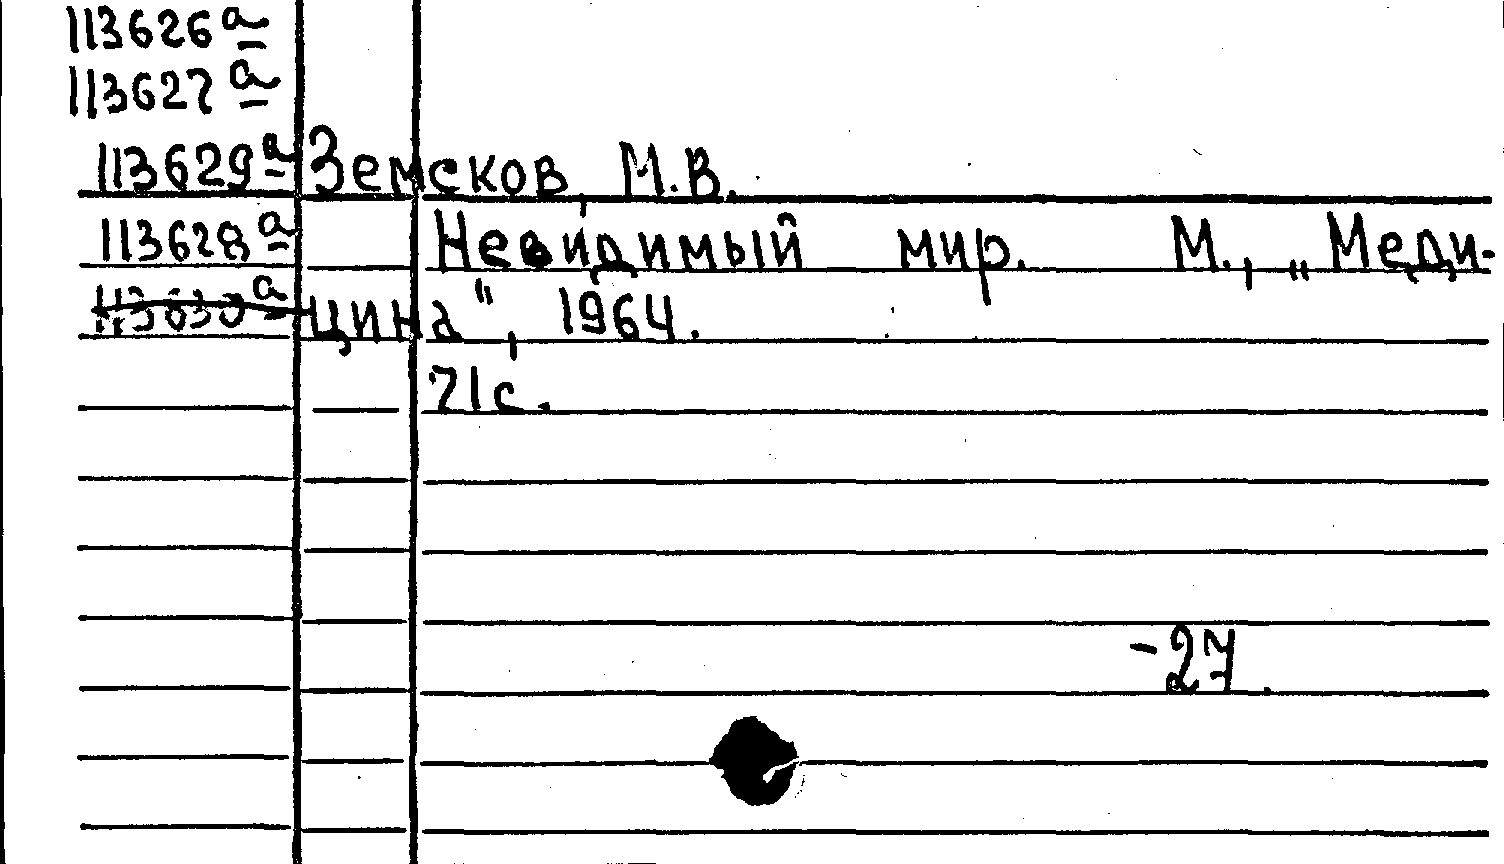 113626а
113627а
113629а Земсков, М.В.
113628а Невидимый мир. М., „Меди-
цина", 1964.
71с.
-27.